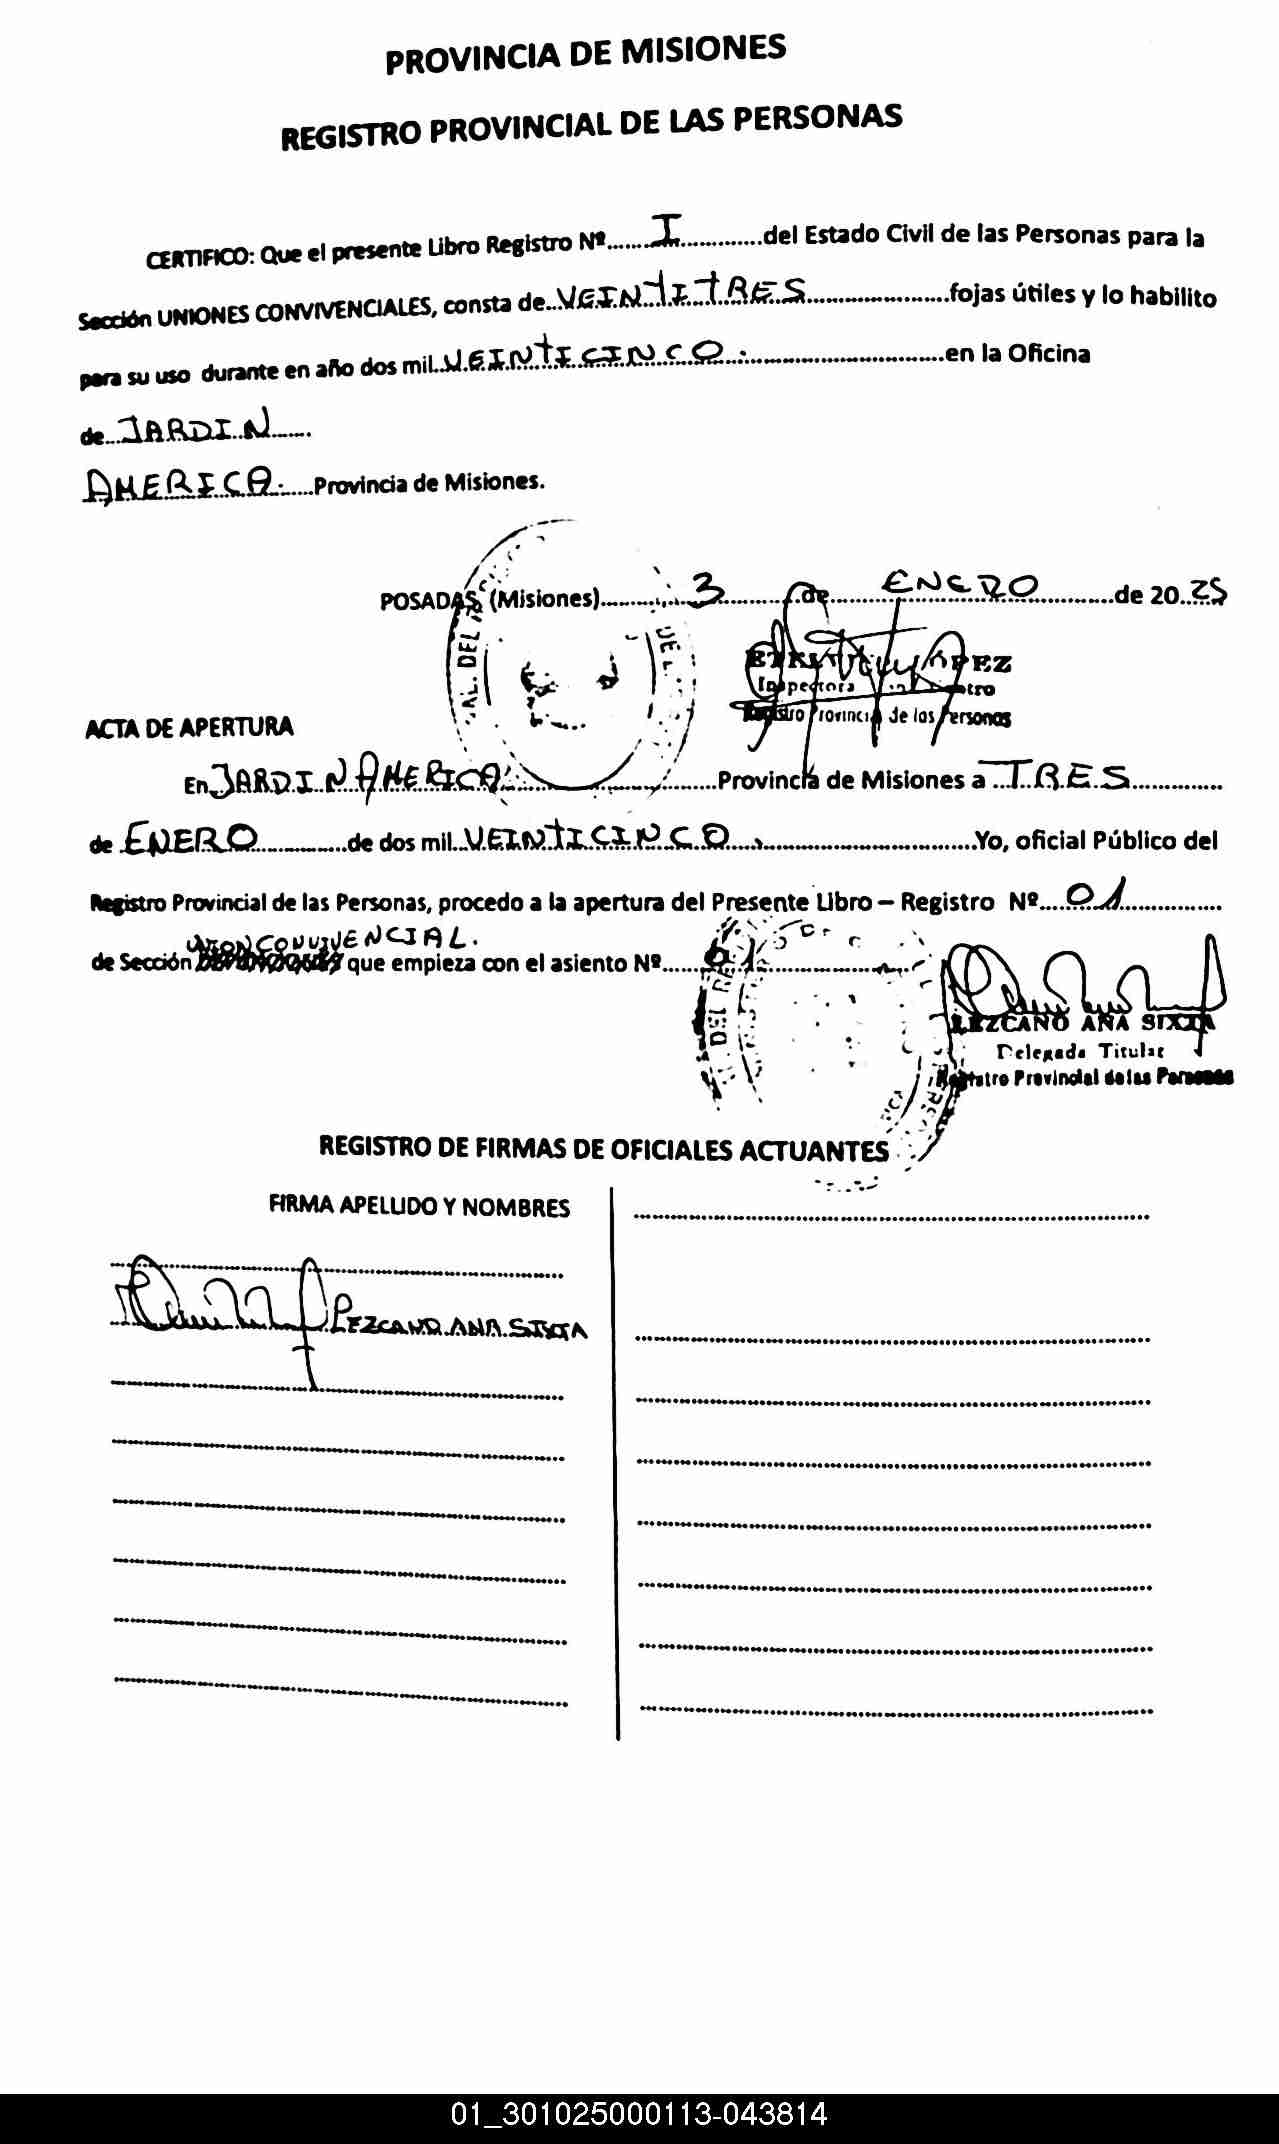 PROVINCIA DE MISIONES
REGISTRO PROVINCIAL DE LAS PERSONAS
CERTIFICO: Que el presente Libro Registro Nº......I............del Estado Civil de las Personas para la
Sección UNIONES CONVIVENCIALES, consta de..VEINTITRES......................fojas útiles y lo habilito
para su uso durante en año dos mil..VEINTICINCO..............................en la Oficina
de...JARDIN.......
AMERICA......Provincia de Misiones.
POSADAS, (Misiones)............3............de............ENERO............de 20..25
LOPEZ
Inspectora
Registro Provincial de las Personas
ACTA DE APERTURA
En..JARDIN AMERICA...........................Provincia de Misiones a ..TRES..............
de ENERO..............de dos mil..VEINTICINCO..................................Yo, oficial Público del
Registro Provincial de las Personas, procedo a la apertura del Presente Libro – Registro Nº....01................
UNION CONVIVENCIAL.
de Sección que empieza con el asiento Nº......01....................
LEZCANO ANA SIXTA
Delegada Titular
Registro Provincial de las Personas
REGISTRO DE FIRMAS DE OFICIALES ACTUANTES
FIRMA APELLIDO Y NOMBRES
LEZCANO ANA SIXTA
01_301025000113-043814